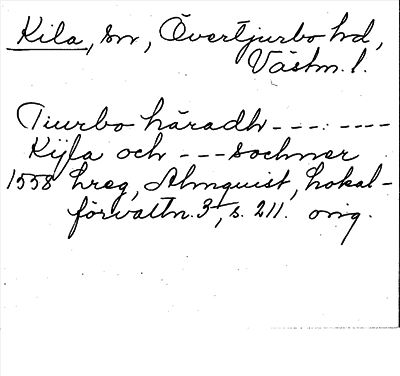 Kila, sn, Övertjurbo hd,
Västm. l.
Tiurbo häradh - - - : - - - -
Kijla och - - - sochner
1558 hreg, Almquist, Lokal-
förvaltn. 3, s. 211. orig.